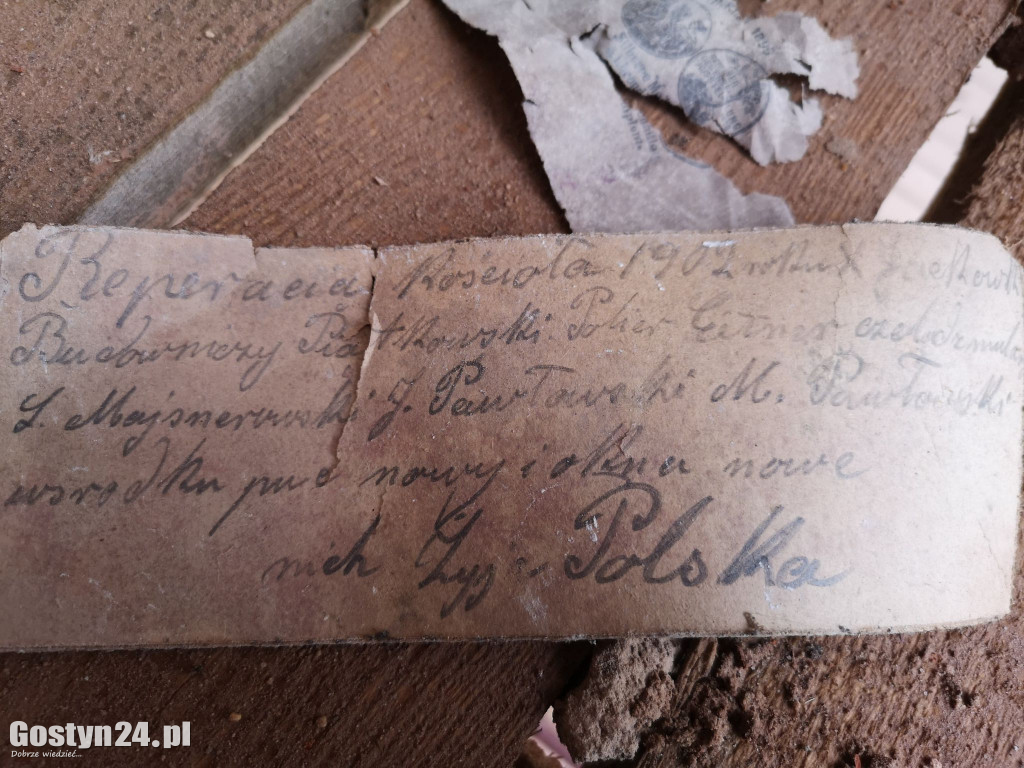 Reperacia Kościoła 1902 roku X
Budowniczy Piotrkowski. Polier Eitner
S. Majsnerowski J. Pawłowski M. Pawłowski
wsrodku puc nowy i okna nowe
nich Zyje Polska
Gostyn24.pl
Dobrze wiedzieć...